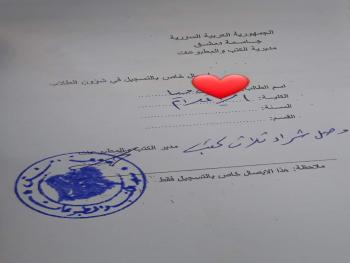 الجمهورية العربية السورية
جامعة دمشق
مديرية الكتب والمطبوعات
إيصال خاص بالتسجيل في شؤون الطلاب
اسم الطالب
الكلية:
السنة:
القسم:
وصل شراء ثلاث كتب
مدير الكتب والمطبوعات
ملاحظة: هذا الايصال خاص بالتسجيل فقط